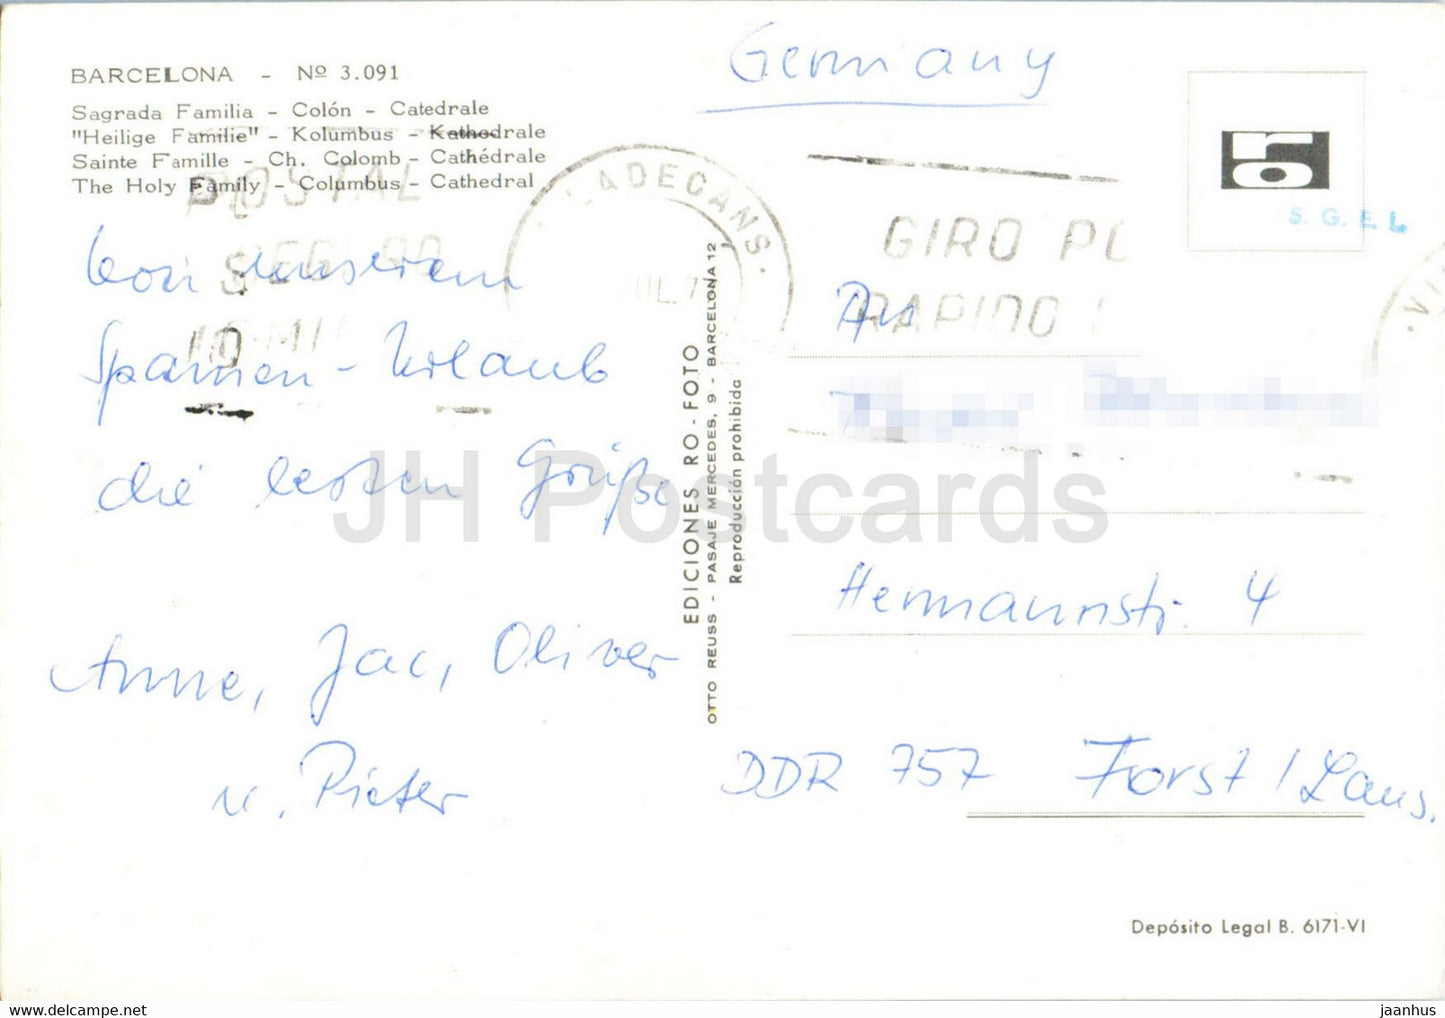 BARCELONA - Nº 3.091
Sagrada Familia - Colón - Catedrale
"Heilige Familie" - Kolumbus - Kathedrale
Sainte Famille - Ch. Colomb - Cathédrale
The Holy Family - Columbus - Cathedral
POSTAL
LADECANS.
Von unserem
Spanien-Urlaub
die besten Grüße
Anne, Jac, Oliver
u. Pieter
EDICIONES RO-FOTO
OTTO REUSS - PASAJE MERCEDES, 9 - BARCELONA 12
Reproducción prohibida
Germany
S. G. E. L.
GIRO PO
RAPIDO
An
Hermannstr. 4
DDR 757 Forst / Laus.
Depósito Legal B. 6171-VI
JH Postcards
hippostcard.com
jaanhus